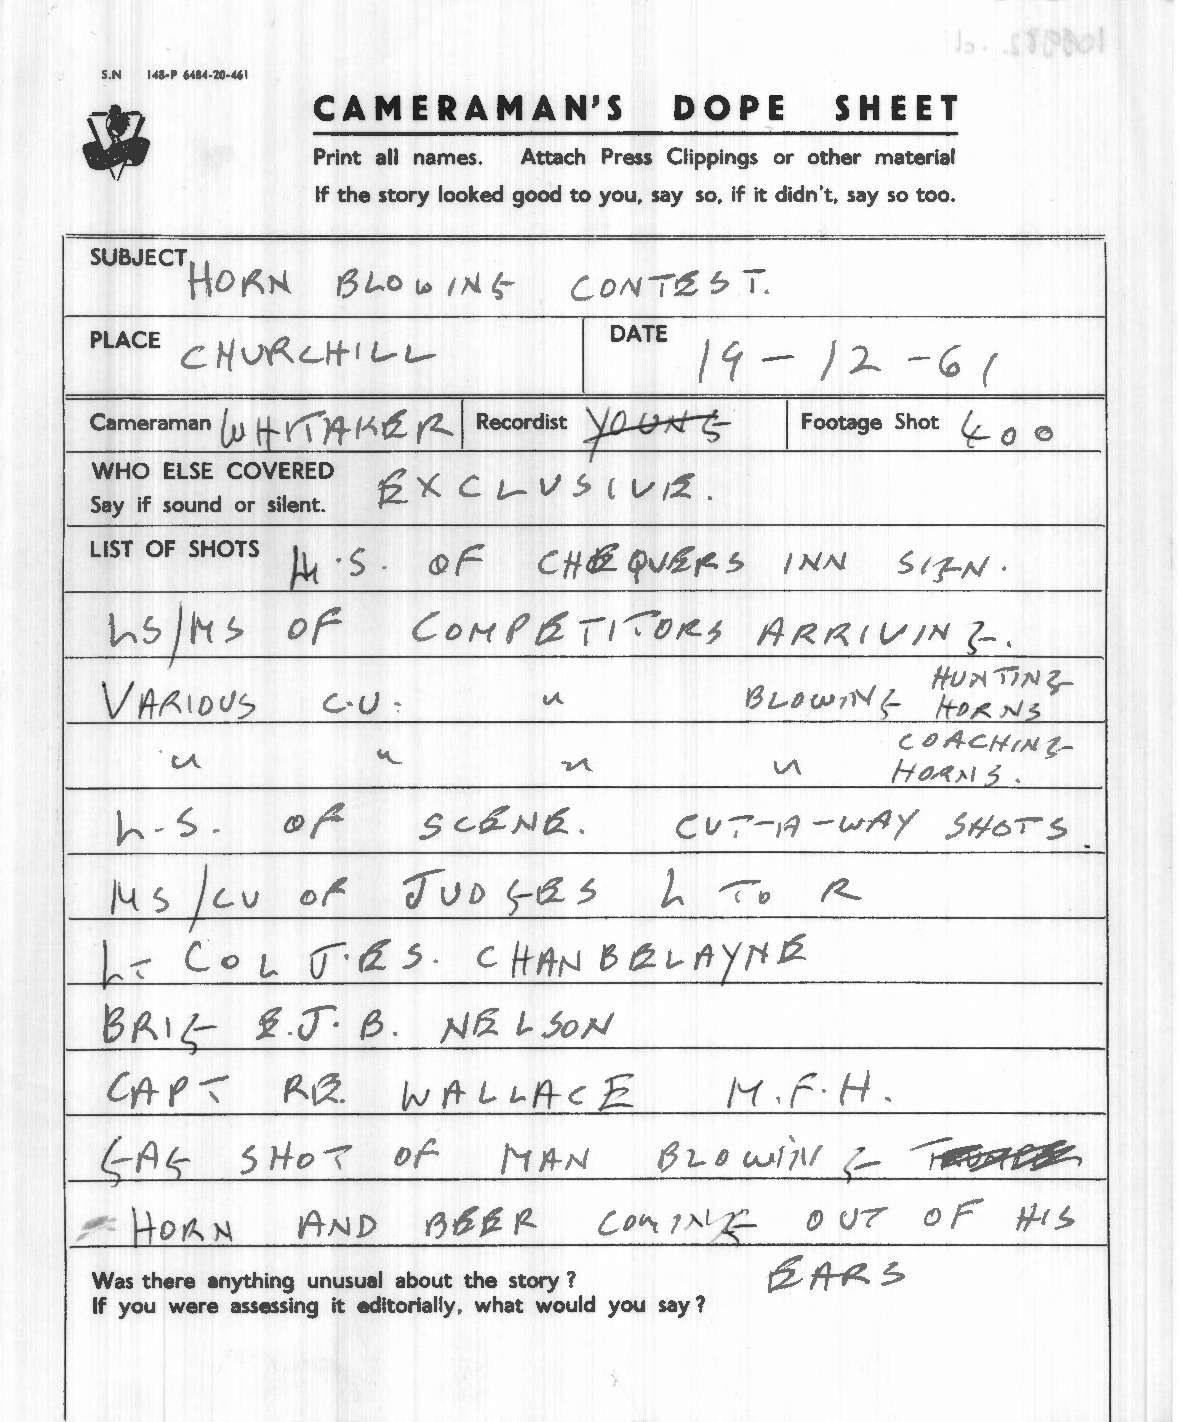 S.N 148-P 6484-20-461
CAMERAMAN'S DOPE SHEET
Print all names. Attach Press Clippings or other material
If the story looked good to you, say so, if it didn't, say so too.
SUBJECT HORN BLOWING CONTEST.
PLACE CHURCHILL DATE 19-12-61
Cameraman WHITAKER Recordist YOUNG Footage Shot 400
WHO ELSE COVERED
Say if sound or silent. EXCLUSIVE.
LIST OF SHOTS M.S. OF CHEQUERS INN SIGN.
LS/MS OF COMPETITORS ARRIVING.
VARIOUS C.U. " BLOWING HUNTING HORNS
" " " " COACHING HORNS.
L.S. OF SCENE. CUT-A-WAY SHOTS.
MS/CU OF JUDGES L TO R
LT COL J.E.S. CHANBELAYNE
BRIG E.J.B. NELSON
CAPT R.E. WALLACE M.F.H.
GAG SHOT OF MAN BLOWING
HORN AND BEER COMING OUT OF HIS
EARS
Was there anything unusual about the story?
If you were assessing it editorially, what would you say?